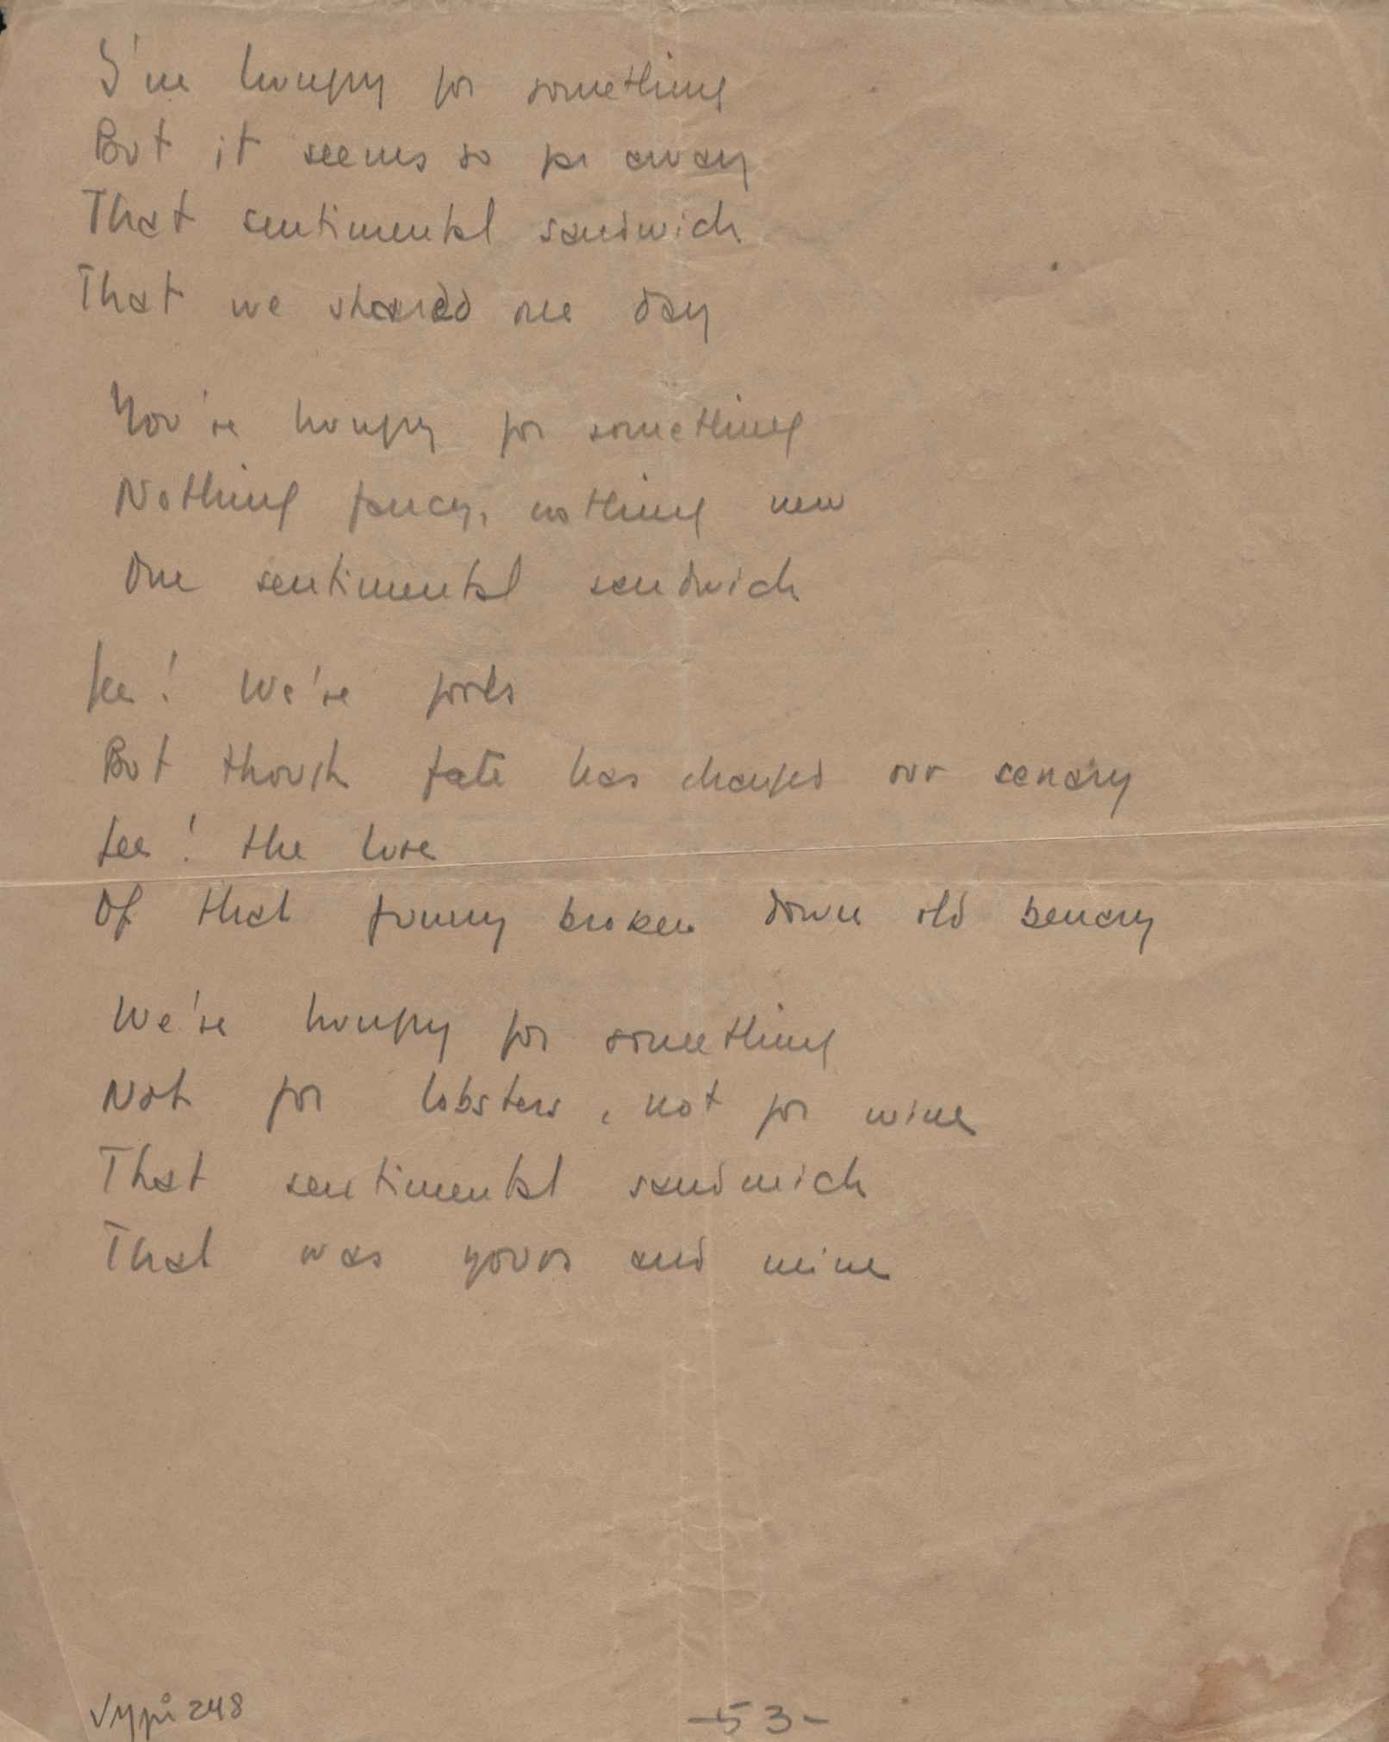 I'm hungry for something
But it seems so far away
That sentimental sandwich
That we shared one day
You're hungry for something
Nothing fancy, nothing new
One sentimental sandwich
fee! We're fools
But though fate has changed our cenary
fee! the lure
Of that funny broken down old beanery
We're hungry for something
Not for lobsters, not for wine
That sentimental sandwich
That was yours and mine
248
-53-